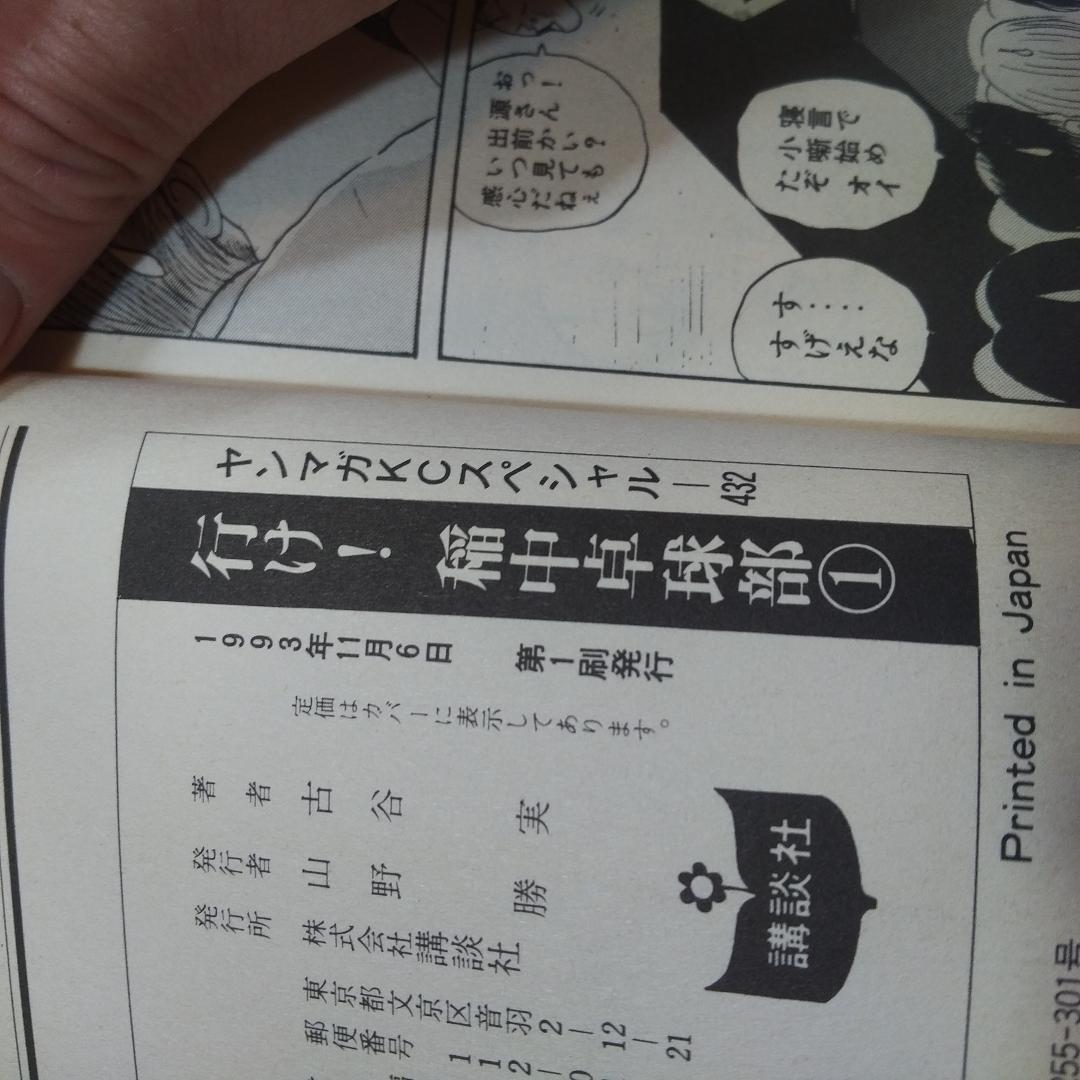 おっ！
源さん
出前かい？
いつ見ても
感心だねぇ
寝言で
小噺始め
たぞオイ
す‥‥
すげえな
ヤンマガKCスペシャル―432
行け！稲中卓球部①
1993年11月6日 第1刷発行
定価はカバーに表示してあります。
著者 古谷 実
発行者 山野 勝
発行所 株式会社講談社
東京都文京区音羽2―12―21
郵便番号 112―0
講談社
Printed in Japan
255-301号